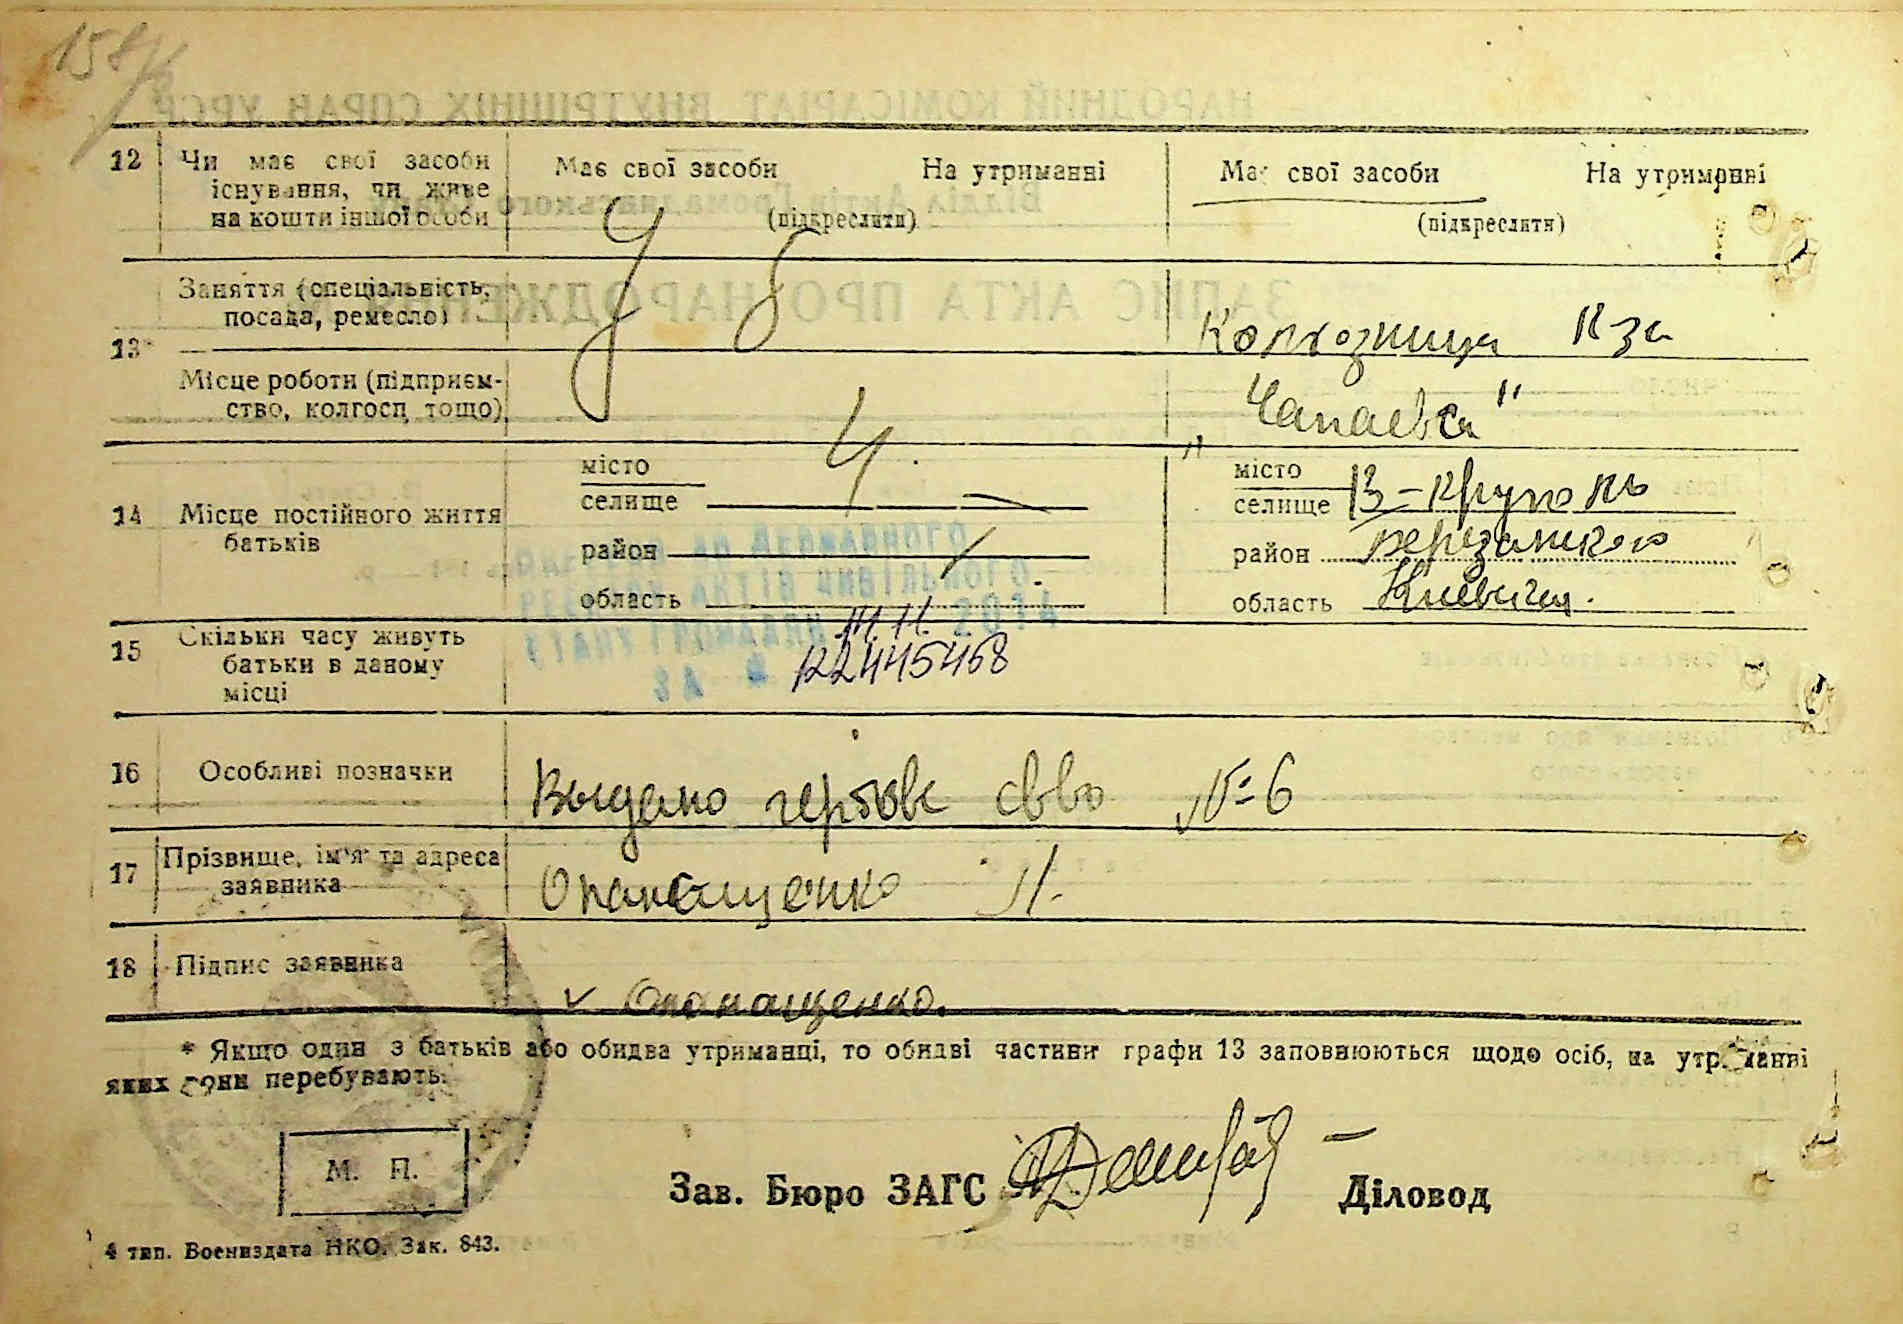 158
12 Чи має свої засоби існування, чи живе на кошти іншої особи
Має свої засоби На утриманні
(підкреслити)
Має свої засоби На утриманні
(підкреслити)
13* Заняття (спеціальність, посада, ремесло)
Колхозница К-за
Місце роботи (підприєм-
ство, колгосп тощо)
„Чапаева"
14 Місце постійного життя батьків
місто
селище
район
область
місто
селище В-Круполь
район Березанского
область Киевская.
15 Скільки часу живуть батьки в даному місці
Внесено до Державного
реєстру актів цивільного
стану громадян 2014
за №
12445468
16 Особливі позначки
Выдано св-во №6
17 Прізвище, ім'я та адреса заявника
Опанащенко Н.
18 Підпис заявника
Опанащенко.
* Якщо один з батьків або обидва утриманці, то обидві частини графи 13 заповнюються щодо осіб, на утриманні
яких вони перебувають.
М. П.
Зав. Бюро ЗАГС
Діловод
4 тип. Воениздата НКО. Зак. 843.